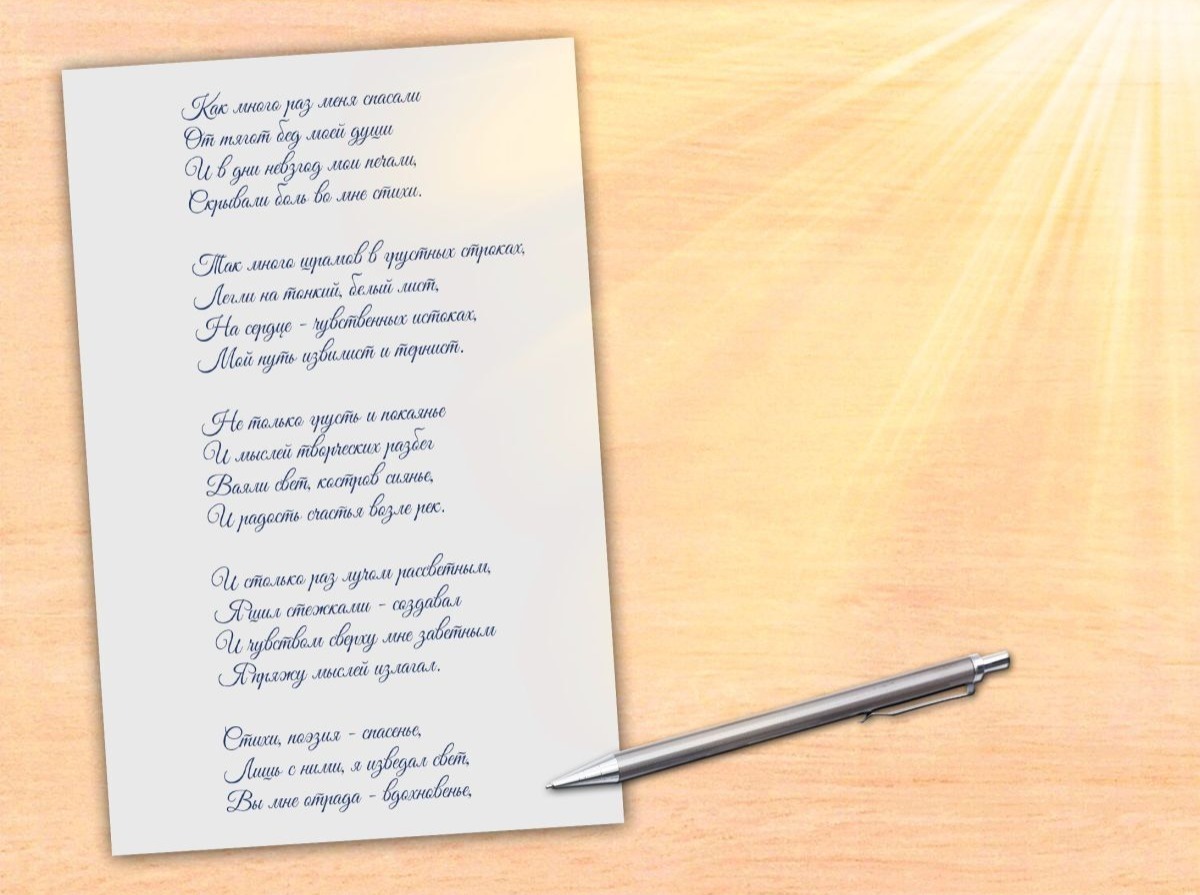 Как много раз меня спасали
От тягот бед моей души
И в дни невзгод мои печали,
Скрывали боль во мне стихи.
Так много шрамов в грустных строках,
Легли на тонкий, белый лист,
На сердце - чувственных истоках,
Мой путь извилист и тернист.
Не только грусть и покаянье
И мыслей творческих разбег
Ваяли свет, костров сиянье,
И радость счастья возле рек.
И столько раз лучом рассветным,
Я шил стежками - создавал
И чувством сверху мне заветным
Я пряжу мыслей излагал.
Стихи, поэзия - спасенье,
Лишь с ними, я изведал свет,
Вы мне отрада - вдохновенье,